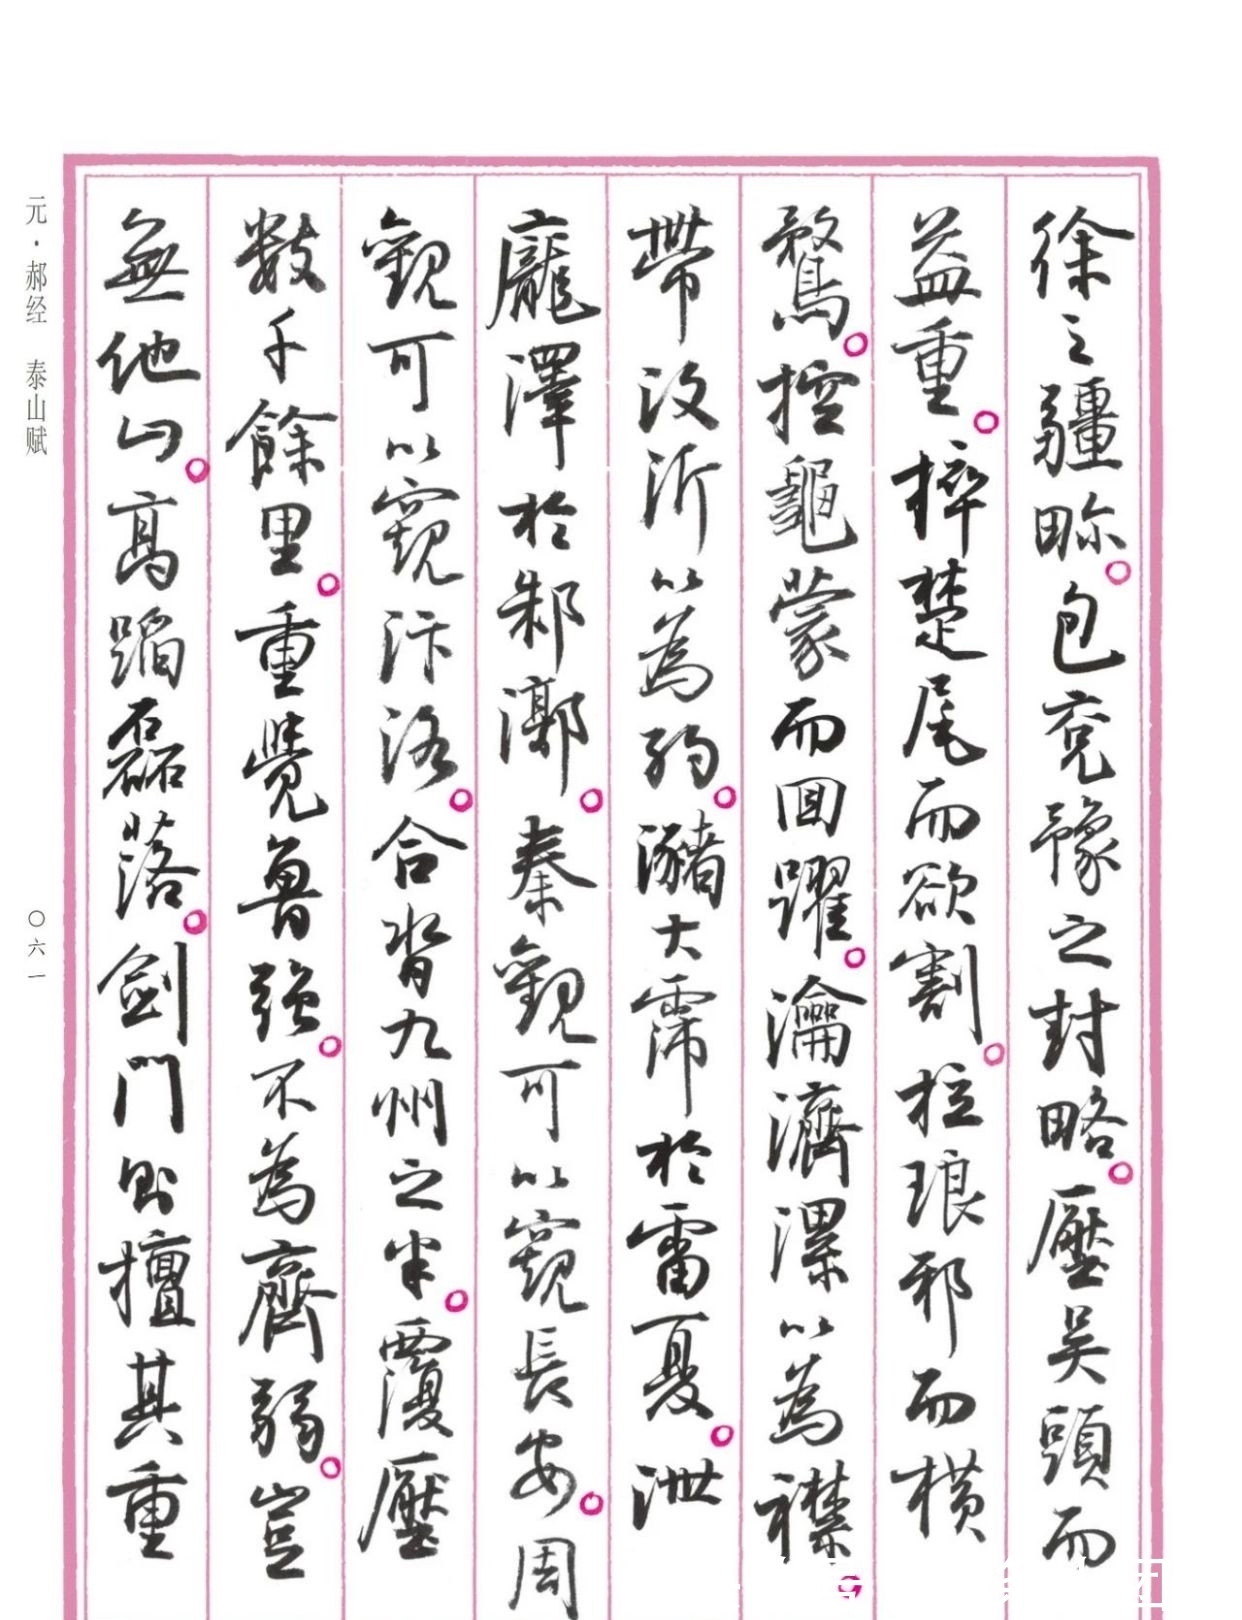 徐之疆畛。包兗豫之封略。壓吴頭而
益重。捽楚尾而欲割。拉琅邪而横
騖。控龜蒙而囬躍。瀹濟漯以為襟
帶汶沂以為約。瀦大霈於雷夏。泄
龐澤於邾漷。秦觀可以窺長安。周
觀可以窺汴洛。合胥九州之半。覆壓
數千餘里。重覺魯强。不為齊弱。豈
無他山。高蹈磊落。劍門則擅其重
元·郝经 泰山赋
〇六一